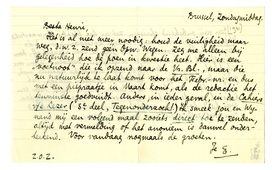 Brussel, Zondagmiddag.
Beste Henri,
Het is al niet meer noodig: houd de veiligheid maar
weg, d.w.z. zend geen Zeg me alleen bij
gelegenheid hoe de poen in kwestie heet. Hier is een
die ik opzend naar de Vr. Bl., maar die
nu natuurlijk te laat komt voor het Febr.-nr. en dus
met een in Maart komt, als de redactie het
tenminste goedvindt. Anders, in ieder geval, in de Cahiers
v/e lezer (5e deel, Tegenonderzoek). Ik smeek jou en
nand mij een volgend maal zooiets direct toe te zenden,
altijd met vermelding of het anoniem is danwel onder-
tekend. Voor vandaag nogmaals de groeten.
Z.O.Z.